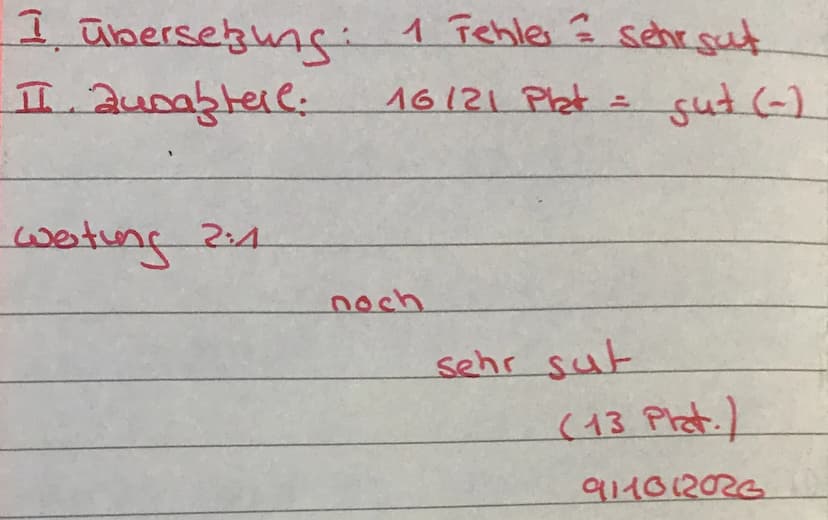 I. Übersetzung: 1 Fehler ≙ sehr gut
II. Zusatzteil: 16/21 Pkt = gut (-)
Wertung 2:1
noch
sehr gut
(13 Pkt.)